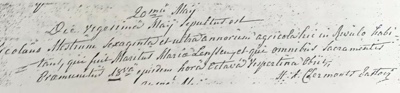 20mâ Maÿ
Die vigesima Maÿ sepultus est
colaus sexaginta et ultra annorum agricola hic in habi
tans, qui fuit Maritus Maria et qui omnibus Sacramentis
Præmunitus 18va ejusdem hora octava Vespertina Obiit,
Clermonts Pastor